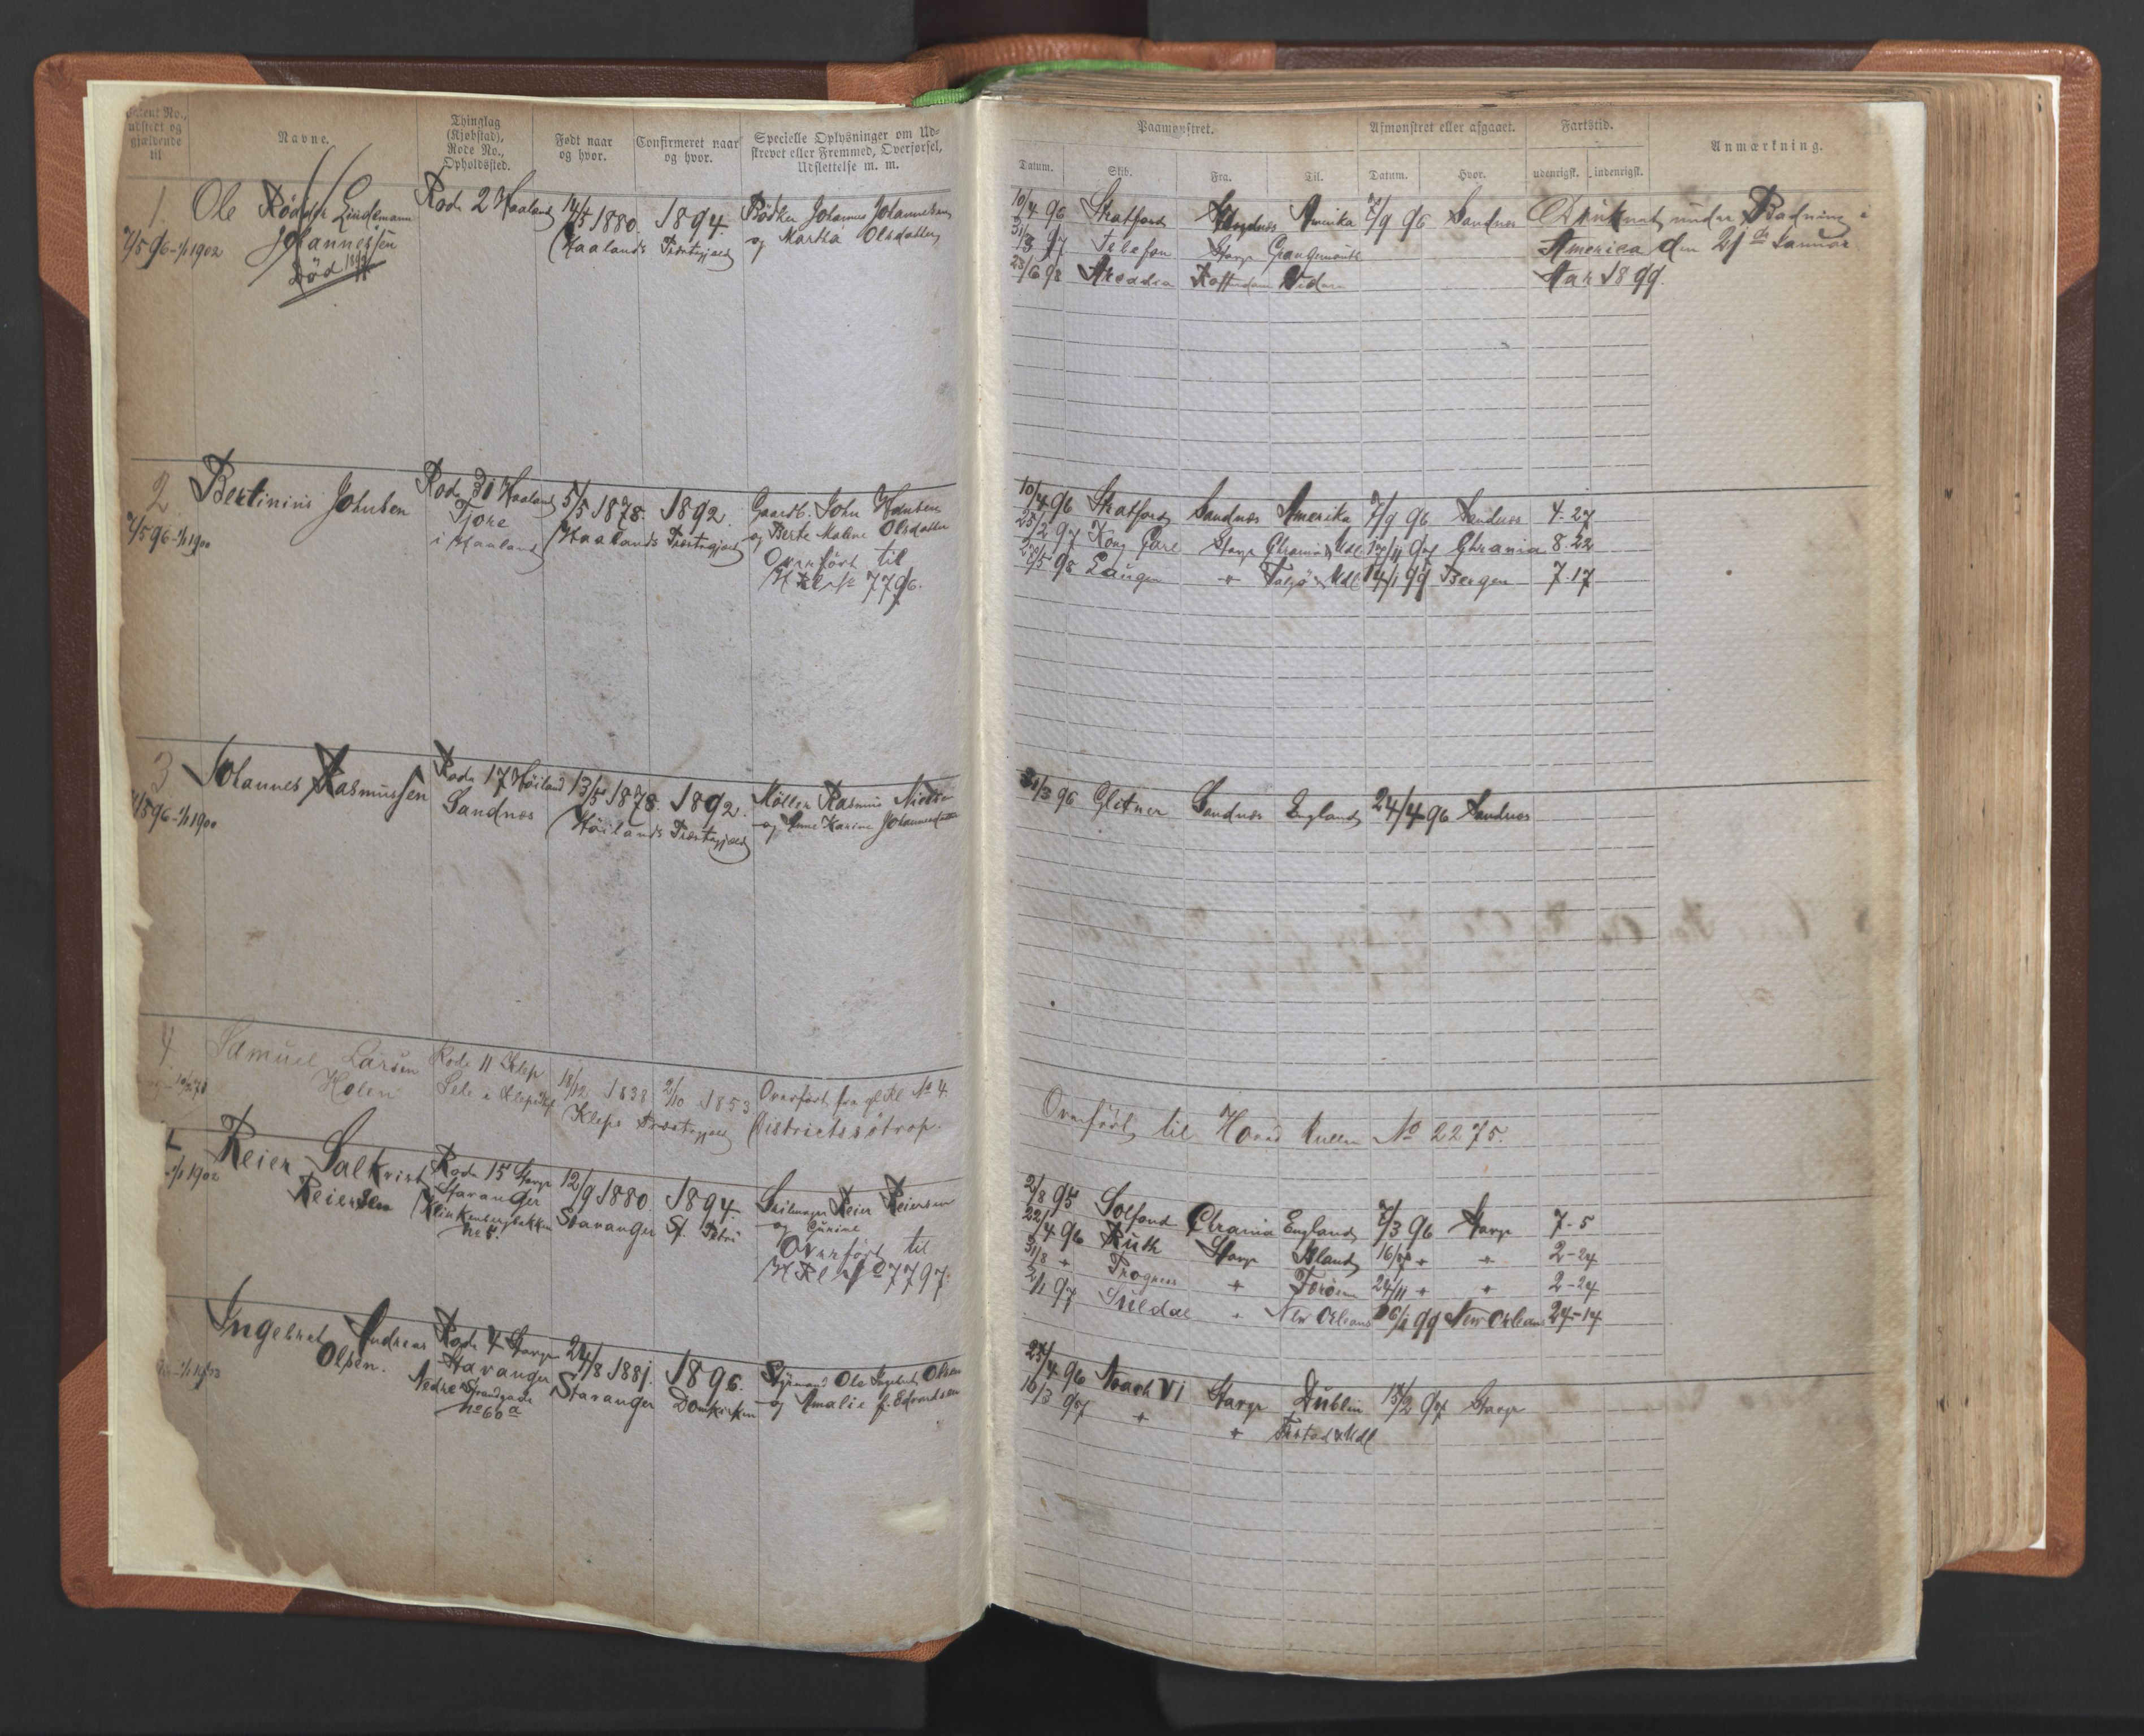 Patent No., udstedt og gjældende til
Navne.
Thinglag (Kjøbstad), Rode No., Opholdssted.
Født naar og hvor.
Confirmeret naar og hvor.
Specielle Oplysninger om Udskrevet eller Fremmed, Overførsel, Udslettelse m. m.
Paamønstret.
Afmønstret eller afgaaet.
Fartstid.
Anmærkning.
Datum.
Skib.
Fra.
Til.
Datum.
Hvor.
udenrigsk.
indenrigsk.
1.
7/5 96-1/1 1902
Ole Lindemann
Johannessen
Død 1899
Rode 2 Haaland
14/5 1880 1894
Haalands Præstegjæld
Bødker Johannes Johannessen
og Martha Olsdatter
10/4 96 Stratford Sandnæs Amerika 7/9 96 Sandnæs
Telefon Stavgr Grangemouth
25/6 98 Arcadia Rotterdam
Druknet under Badning i
America den 21de Januar
Aar 1899.
2
7/5 96-1/1 1900
Bertinius Johnsen
Rode 31 Haaland
Tjore
i Haaland
5/5 1878 1892
Haalands Præstegjæld
Gaardb. John Hansen
og Berte Maline Olsdatter
Overført til
H Rl No 7796.
10/4 96 Stratford Sandnæs Amerika 7/9 96 Sandnæs 4-27
25/2 97 Kong Carl Stavgr Chrania & Udl 97 Chrania 8.22
5/98 Laugen + & Udl 14/1 99 Bergen 7.17
3
7/5 96-1/1 1900
Johannes Rasmussen
Rode 17 Høiland
Sandnæs
13/5 1878. 1892.
Høilands Præstegjæld
Møller Rasmus
og Anne Karine Johannesdatter
31/3 96 Glitner Sandnæs England 24/4 96 Sandnæs
4
Samuel Larsen
Holen
Rode 11 Klep
Sele i Klep
18/12 1838 2/10 1853
Kleps Præstegjæld
Overført fra gl Rl No 4.
Districtssøtrop.
Overført til Hoved Rullen No 2275.
-1/1 1902
Reier Salkvist
Reiersen
Rode 15 Stavgr
Stavanger
Klinkenbergbakken
No 5.
12/9 1880 1894
Stavanger St. Petri
Seilmager Reier Reiersen
og Gurine
Overført til
H Rl No 7797.
2/8 95 Solfond Chrania England 7/3 96 Stavgr 7-5
22/4 96 Ruth Stavgr Island 16/7 + + 2-24
31/8 + Progress + Færøerne 24/11 + + 2-24
2/1 97 Sildal New Orleans 26/1 99 New Orleans 24-14
Ingebret Andreas
Olsen.
Rode 4 Stavgr
Stavanger
Nedre Strandgade
No 60 a
24/8 1881. 1896.
Stavanger Domkirken
Styrmand Ole Ingebret Olsen
og Amalie f. Edvardsen
27/4 96 Noach VI Stavgr Dublin 15/2 97 Stavgr
10/3 97 + + & Udl